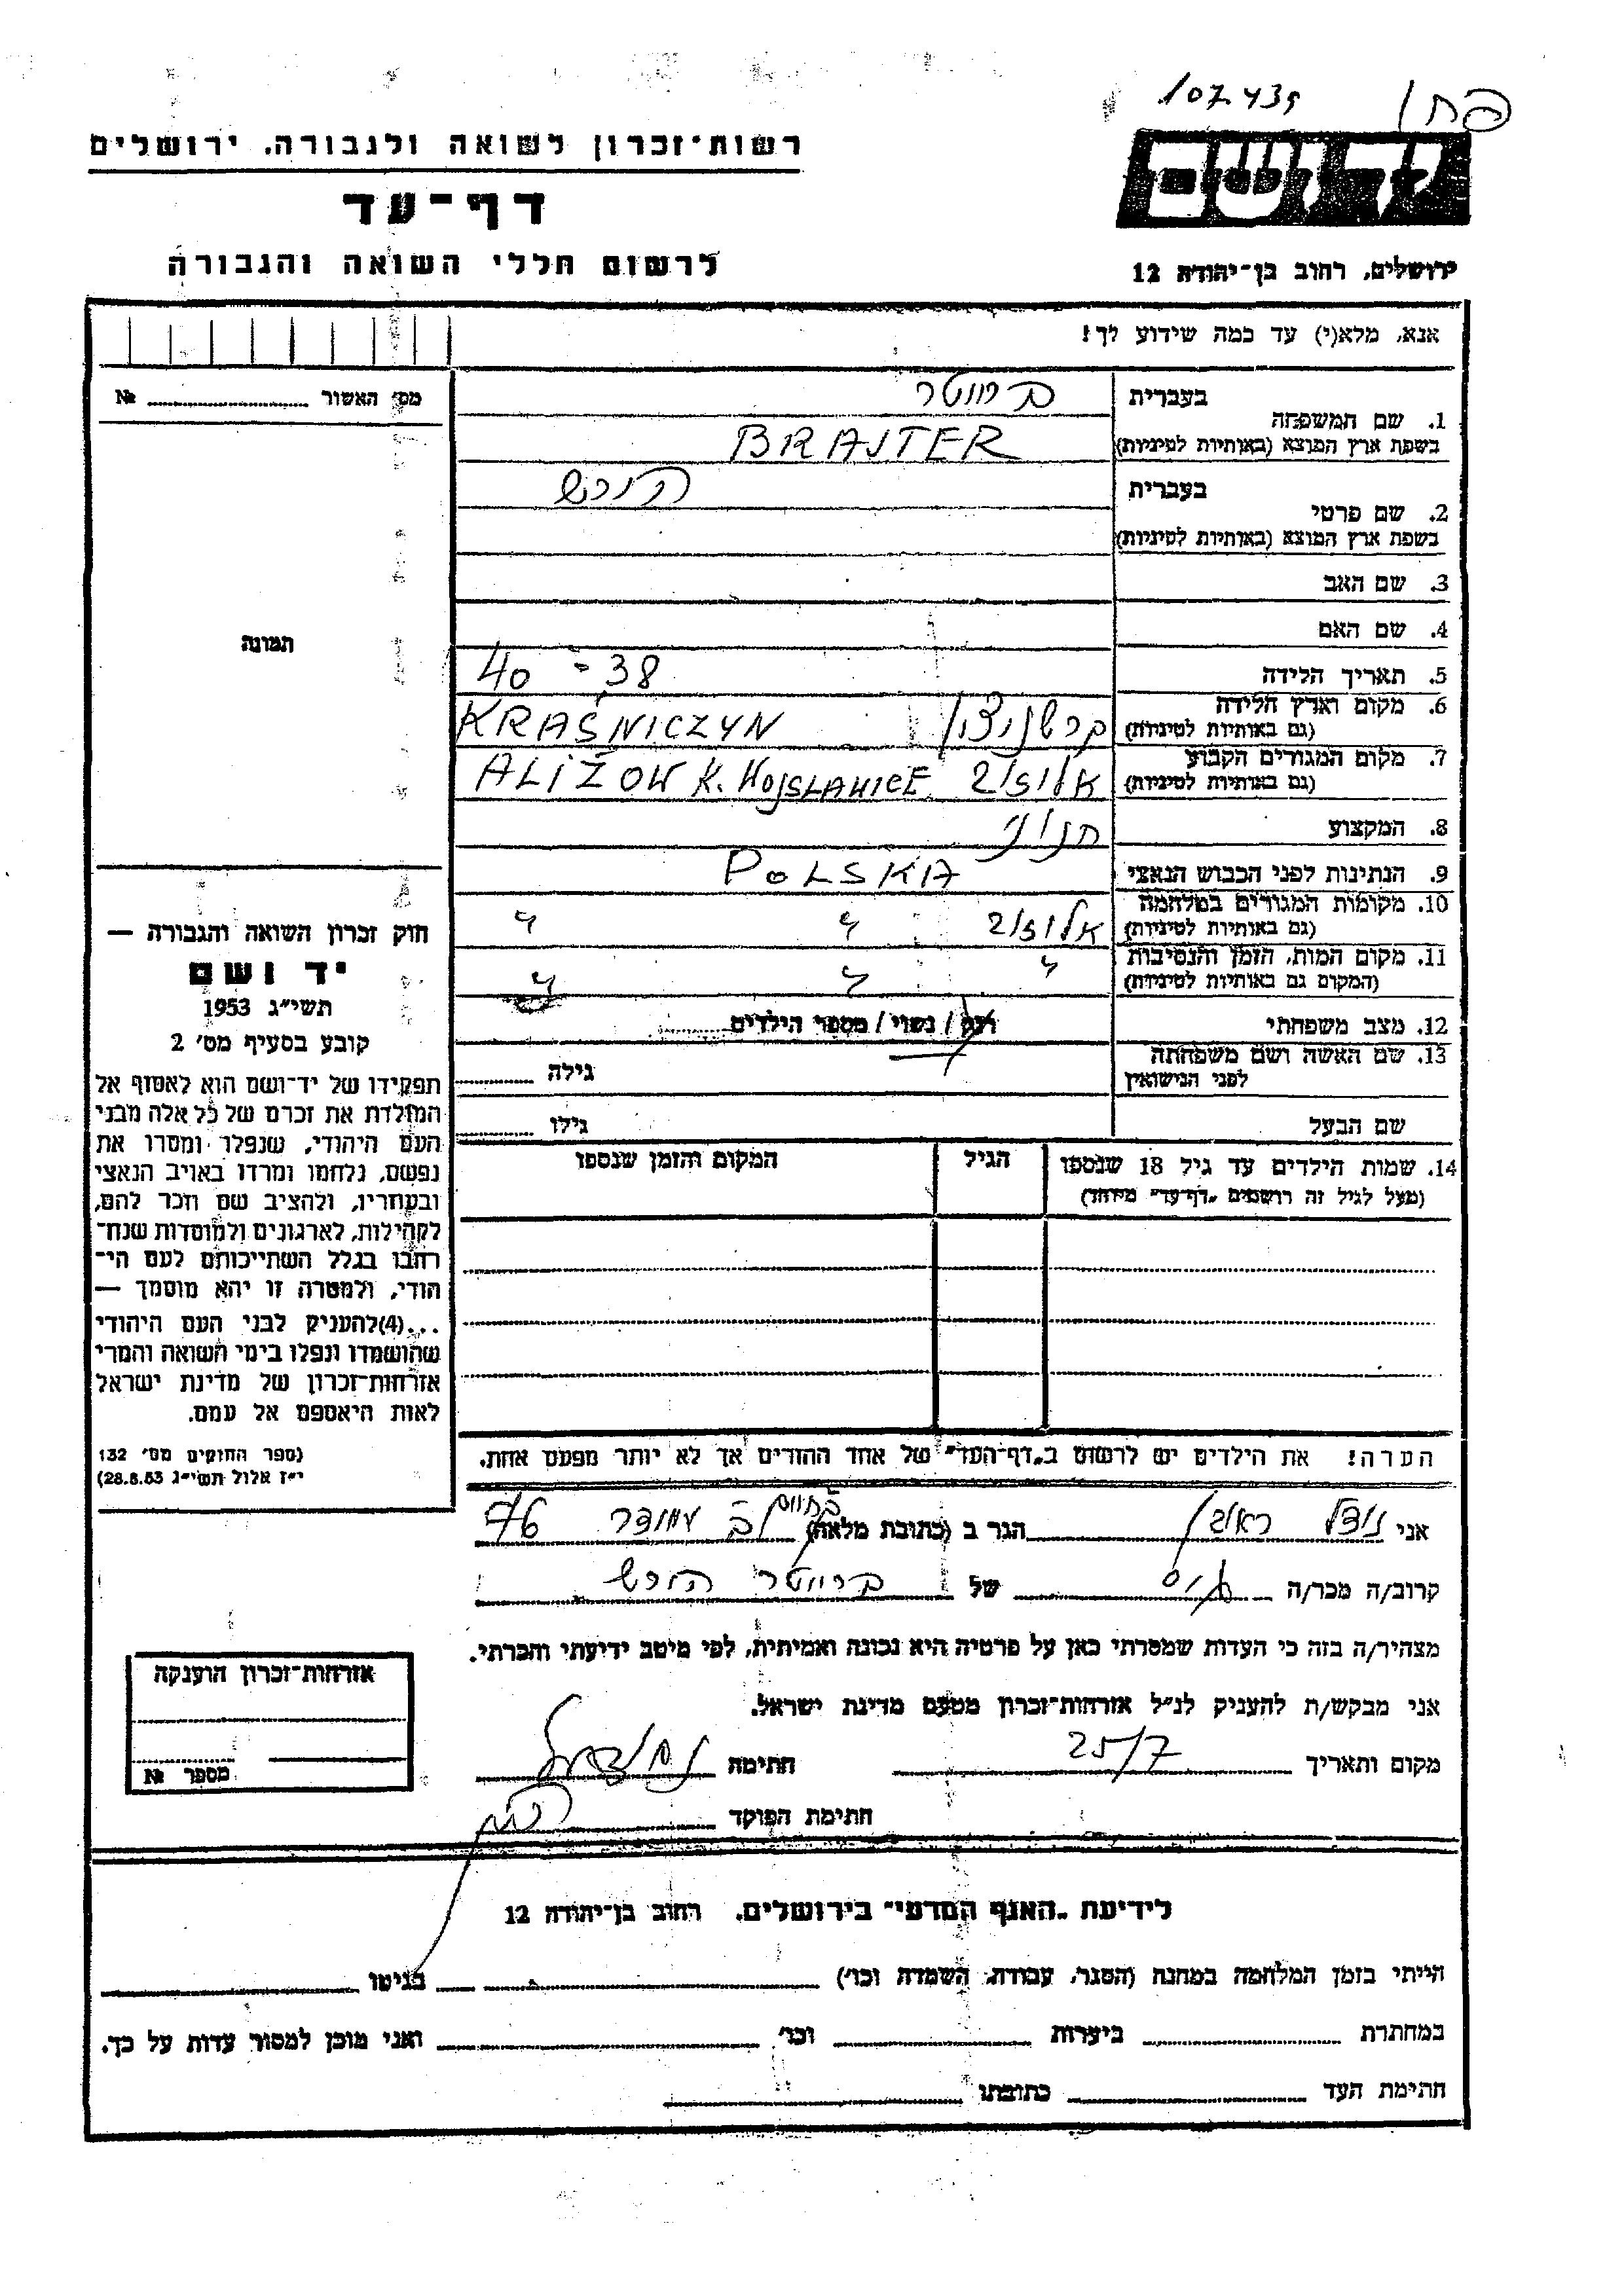 107439
יד ושם
רשות־זכרון לשואה ולגבורה, ירושלים
דף־עד
לרשום חללי השואה והגבורה
ירושלים, רחוב בן־יהודה 12
אנא, מלא(י) עד כמה שידוע לך!
מס׳ האשור № 
1. שם המשפחה
בעברית
ברייטר
בשפת ארץ המוצא (באותיות לטיניות)
BRAJTER
2. שם פרטי
בעברית
הירש
בשפת ארץ המוצא (באותיות לטיניות)
3. שם האב
4. שם האם
תמונה
5. תאריך הלידה 38 - 40
6. מקום וארץ הלידה
(גם באותיות לטיניות)
KRAŚNICZYN
7. מקום המגורים הקבוע
(גם באותיות לטיניות)
ALIŻOW K. WOJSLAWICE
8. המקצוע
חנוני
9. הנתינות לפני הכבוש הנאצי POLSKA
10. מקומות המגורים במלחמה
(גם באותיות לטיניות)
11. מקום המות, הזמן והנסיבות
(המקום גם באותיות לטיניות)
12. מצב משפחתי
רוק / נשוי / מספר הילדים
13. שם האשה ושם משפחתה
לפני הנישואין
גילה
שם הבעל
גילו
14. שמות הילדים עד גיל 18 שנספו
(מעל לגיל זה רושמים „דף־עד״ מיוחד)
הגיל
המקום והזמן שנספו
חוק זכרון השואה והגבורה —
יד ושם
תשי״ג 1953
קובע בסעיף מס׳ 2
תפקידו של יד־ושם הוא לאסוף אל
המולדת את זכרם של כל אלה מבני
העם היהודי, שנפלו ומסרו את
נפשם, נלחמו ומרדו באויב הנאצי
ובעוזריו, ולהציב שם וזכר להם,
לקהילות, לארגונים ולמוסדות שנח־
רבו בגלל השתייכותם לעם הי־
הודי, ולמטרה זו יהא מוסמך —
...(4)להעניק לבני העם היהודי
שהושמדו ונפלו בימי השואה והמרי
אזרחות־זכרון של מדינת ישראל
לאות היאספם אל עמם.
(ספר החוקים מס׳ 132
י״ז אלול תשי״ג 28.8.53)
הערה! את הילדים יש לרשום ב„דף־העד״ של אחד ההורים אך לא יותר מפעם אחת.
אני נודל ראובן הגר ב (כתובת מלאה)
קרוב/ה מכר/ה גיס של ברייטר הירש
מצהיר/ה בזה כי העדות שמסרתי כאן על פרטיה היא נכונה ואמיתית, לפי מיטב ידיעתי והכרתי.
אני מבקש/ת להעניק לנ״ל אזרחות־זכרון מטעם מדינת ישראל.
מקום ותאריך 25/7 חתימה
חתימת הפוקד
אזרחות־זכרון הוענקה
מספר №
לידיעת „האגף המדעי״ בירושלים, רחוב בן־יהודה 12
הייתי בזמן המלחמה במחנה (הסגר, עבודה, השמדה וכו׳) בגיטו
במחתרת ביערות וכו׳ ואני מוכן למסור עדות על כך.
חתימת העד כתובתו